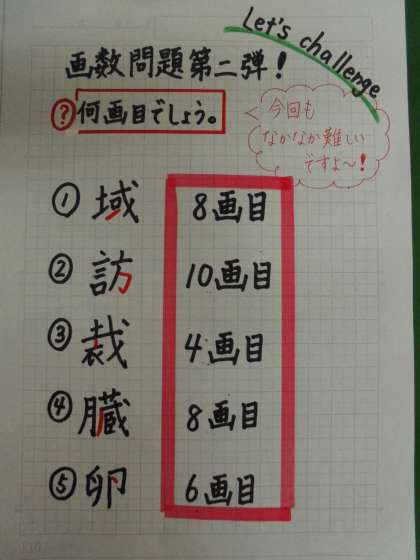 Let's challenge
画数問題第二弾!
?何画目でしょう。
今回も
なかなか難しい
ですよ〜!
① 域 8画目
② 訪 10画目
③ 裁 4画目
④ 臓 8画目
⑤ 卵 6画目